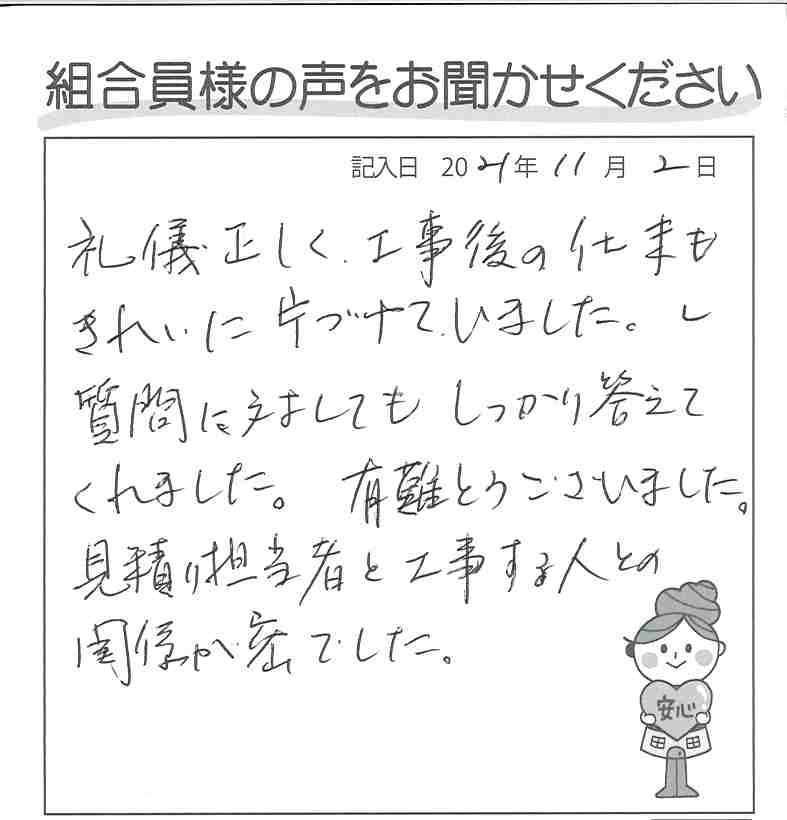 組合員様の声をお聞かせください
記入日 2021年 11月 2日
礼儀正しく、工事後の仕末も
きれいに片づけていました。し
質問に対しましてもしっかり答えて
くれました。 有難とうございました。
見積り担当者と工事する人との
関係が密でした。
安心